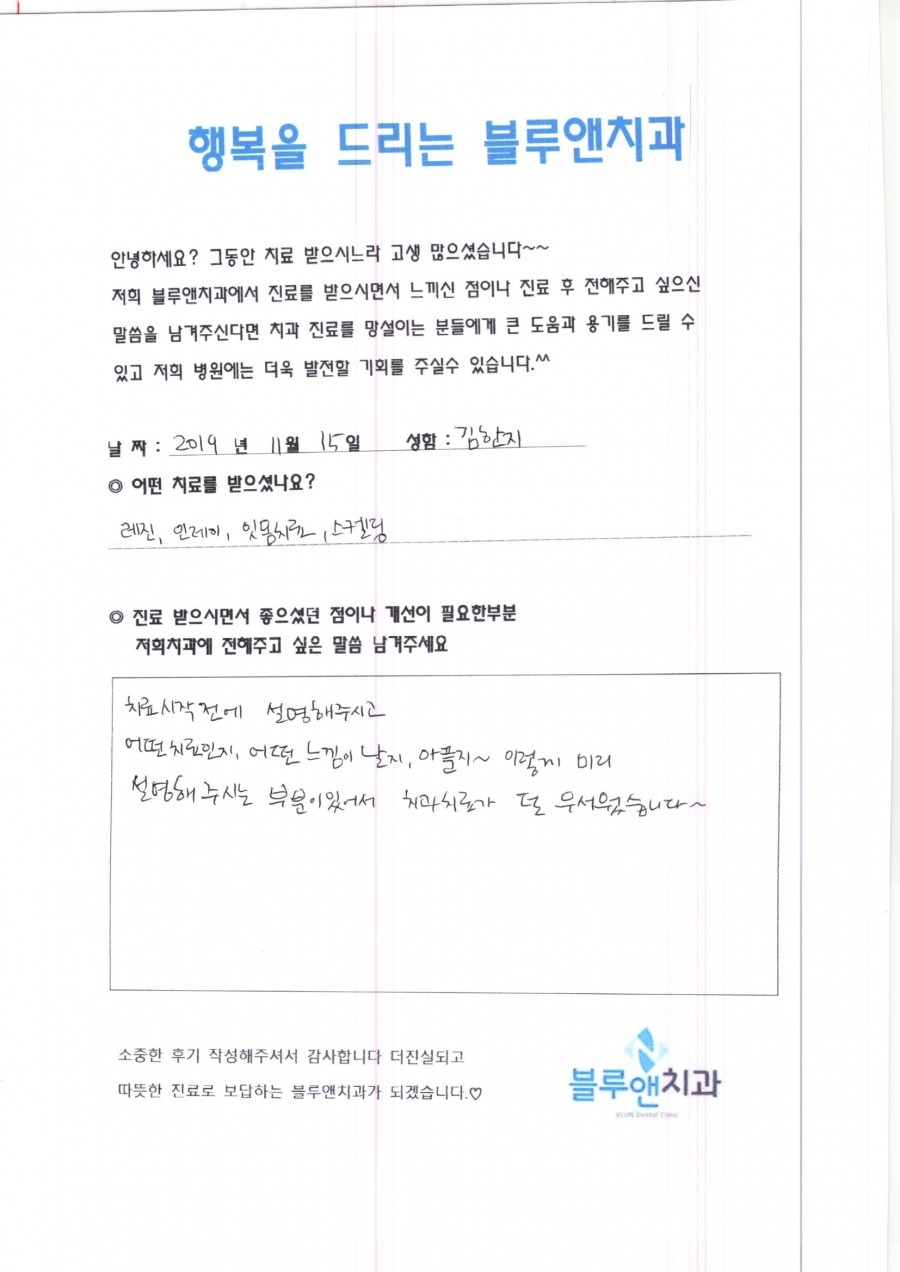 행복을 드리는 블루앤치과
안녕하세요? 그동안 치료 받으시느라 고생 많으셨습니다~~
저희 블루앤치과에서 진료를 받으시면서 느끼신 점이나 진료 후 전해주고 싶으신
말씀을 남겨주신다면 치과 진료를 망설이는 분들에게 큰 도움과 용기를 드릴 수
있고 저희 병원에는 더욱 발전할 기회를 주실수 있습니다.^^
날 짜 : 2019 년 11월 15일 성함 : 김한지
◎ 어떤 치료를 받으셨나요?
레진, 인레이, 잇몸치료, 스케일링
◎ 진료 받으시면서 좋으셨던 점이나 개선이 필요한부분
저희치과에 전해주고 싶은 말씀 남겨주세요
치료시작 전에 설명해주시고
어떤치료인지, 어떤 느낌이 날지, 아플지~ 이렇게 미리
설명해 주시는 부분이있어서 치과치료가 덜 무서웠습니다~
소중한 후기 작성해주셔서 감사합니다 더진실되고
따뜻한 진료로 보답하는 블루앤치과가 되겠습니다.♡
블루앤치과
VLUN Dental Clinic